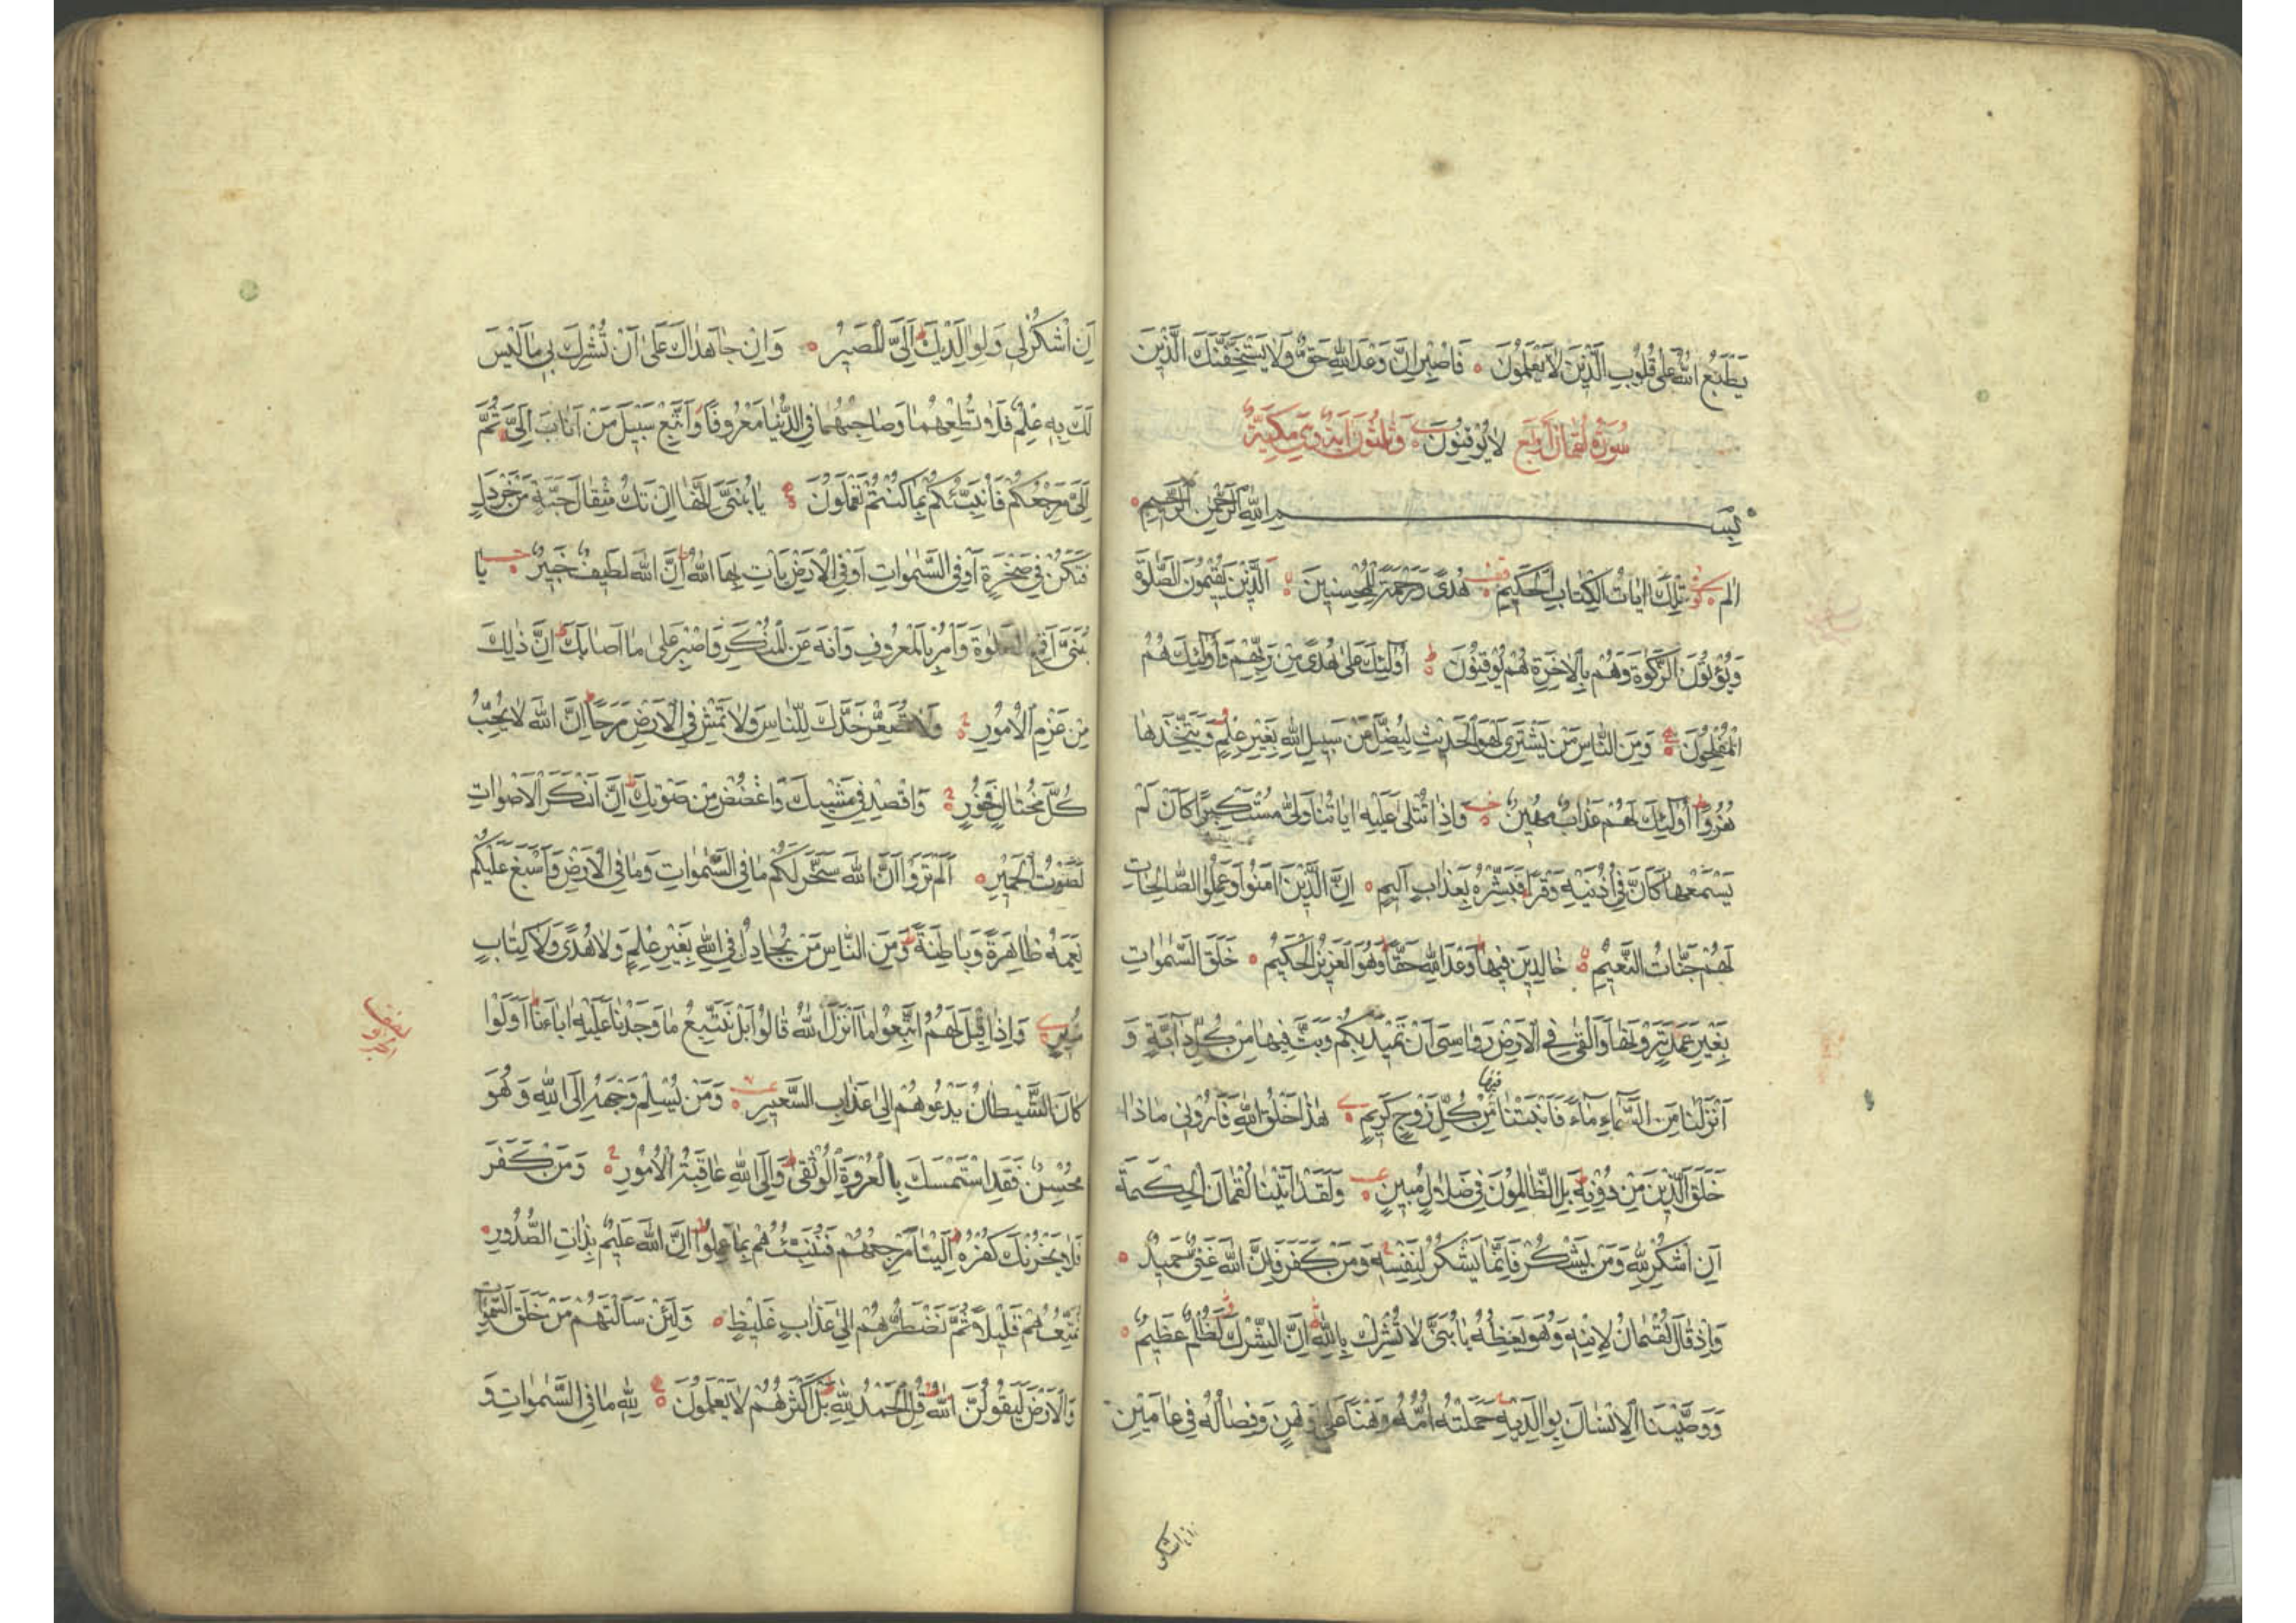 يَطْبَعُ اللّٰهُ عَلٰى قُلُوبِ الَّذِينَ لَا يَعْلَمُونَ ۝ فَاصْبِرْ اِنَّ وَعْدَ اللّٰهِ حَقٌّ وَلَا يَسْتَخِفَّنَّكَ الَّذِينَ
سُورَةُ لُقْمَانَ اَرْبَعَ لَا يُوقِنُونَ وَثَلٰثُونَ اٰيَةً وَهِيَ مَكِّيَّةٌ
بِسْمِ اللّٰهِ الرَّحْمٰنِ الرَّحِيمِ
الٓمٓ تِلْكَ اٰيَاتُ الْكِتَابِ الْحَكِيمِ هُدًى وَرَحْمَةً لِلْمُحْسِنِينَ اَلَّذِينَ يُقِيمُونَ الصَّلٰوةَ
وَيُؤْتُونَ الزَّكٰوةَ وَهُمْ بِالْاٰخِرَةِ هُمْ يُوقِنُونَ اُولٰئِكَ عَلٰى هُدًى مِنْ رَبِّهِمْ وَاُولٰئِكَ هُمُ
الْمُفْلِحُونَ وَمِنَ النَّاسِ مَنْ يَشْتَرِي لَهْوَ الْحَدِيثِ لِيُضِلَّ عَنْ سَبِيلِ اللّٰهِ بِغَيْرِ عِلْمٍ وَيَتَّخِذَهَا
هُزُوًا اُولٰئِكَ لَهُمْ عَذَابٌ مُهِينٌ وَاِذَا تُتْلٰى عَلَيْهِ اٰيَاتُنَا وَلّٰى مُسْتَكْبِرًا كَاَنْ لَمْ
يَسْمَعْهَا كَاَنَّ فِي اُذُنَيْهِ وَقْرًا فَبَشِّرْهُ بِعَذَابٍ اَلِيمٍ اِنَّ الَّذِينَ اٰمَنُوا وَعَمِلُوا الصَّالِحَاتِ
لَهُمْ جَنَّاتُ النَّعِيمِ خَالِدِينَ فِيهَا وَعْدَ اللّٰهِ حَقًّا وَهُوَ الْعَزِيزُ الْحَكِيمُ خَلَقَ السَّمٰوَاتِ
بِغَيْرِ عَمَدٍ تَرَوْنَهَا وَاَلْقٰى فِي الْاَرْضِ رَوَاسِيَ اَنْ تَمِيدَ بِكُمْ وَبَثَّ فِيهَا مِنْ كُلِّ دَابَّةٍ وَ
اَنْزَلْنَا مِنَ السَّمَاءِ مَاءً فَاَنْبَتْنَا فِيهَا مِنْ كُلِّ زَوْجٍ كَرِيمٍ هٰذَا خَلْقُ اللّٰهِ فَاَرُونِي مَاذَا
خَلَقَ الَّذِينَ مِنْ دُونِهِ بَلِ الظَّالِمُونَ فِي ضَلَالٍ مُبِينٍ وَلَقَدْ اٰتَيْنَا لُقْمَانَ الْحِكْمَةَ
اَنِ اشْكُرْ لِلّٰهِ وَمَنْ يَشْكُرْ فَاِنَّمَا يَشْكُرُ لِنَفْسِهِ وَمَنْ كَفَرَ فَاِنَّ اللّٰهَ غَنِيٌّ حَمِيدٌ
وَاِذْ قَالَ لُقْمَانُ لِابْنِهِ وَهُوَ يَعِظُهُ يَا بُنَيَّ لَا تُشْرِكْ بِاللّٰهِ اِنَّ الشِّرْكَ لَظُلْمٌ عَظِيمٌ
وَوَصَّيْنَا الْاِنْسَانَ بِوَالِدَيْهِ حَمَلَتْهُ اُمُّهُ وَهْنًا عَلٰى وَهْنٍ وَفِصَالُهُ فِي عَامَيْنِ
ان اشكر
اَنِ اشْكُرْ لِي وَلِوَالِدَيْكَ اِلَيَّ الْمَصِيرُ وَاِنْ جَاهَدَاكَ عَلٰى اَنْ تُشْرِكَ بِي مَا لَيْسَ
لَكَ بِهِ عِلْمٌ فَلَا تُطِعْهُمَا وَصَاحِبْهُمَا فِي الدُّنْيَا مَعْرُوفًا وَاتَّبِعْ سَبِيلَ مَنْ اَنَابَ اِلَيَّ ثُمَّ
اِلَيَّ مَرْجِعُكُمْ فَاُنَبِّئُكُمْ بِمَا كُنْتُمْ تَعْمَلُونَ يَا بُنَيَّ اِنَّهَا اِنْ تَكُ مِثْقَالَ حَبَّةٍ مِنْ خَرْدَلٍ
فَتَكُنْ فِي صَخْرَةٍ اَوْ فِي السَّمٰوَاتِ اَوْ فِي الْاَرْضِ يَأْتِ بِهَا اللّٰهُ اِنَّ اللّٰهَ لَطِيفٌ خَبِيرٌ يَا
بُنَيَّ اَقِمِ الصَّلٰوةَ وَأْمُرْ بِالْمَعْرُوفِ وَانْهَ عَنِ الْمُنْكَرِ وَاصْبِرْ عَلٰى مَا اَصَابَكَ اِنَّ ذٰلِكَ
مِنْ عَزْمِ الْاُمُورِ وَلَا تُصَعِّرْ خَدَّكَ لِلنَّاسِ وَلَا تَمْشِ فِي الْاَرْضِ مَرَحًا اِنَّ اللّٰهَ لَا يُحِبُّ
كُلَّ مُخْتَالٍ فَخُورٍ وَاقْصِدْ فِي مَشْيِكَ وَاغْضُضْ مِنْ صَوْتِكَ اِنَّ اَنْكَرَ الْاَصْوَاتِ
لَصَوْتُ الْحَمِيرِ اَلَمْ تَرَوْا اَنَّ اللّٰهَ سَخَّرَ لَكُمْ مَا فِي السَّمٰوَاتِ وَمَا فِي الْاَرْضِ وَاَسْبَغَ عَلَيْكُمْ
نِعَمَهُ ظَاهِرَةً وَبَاطِنَةً وَمِنَ النَّاسِ مَنْ يُجَادِلُ فِي اللّٰهِ بِغَيْرِ عِلْمٍ وَلَا هُدًى وَلَا كِتَابٍ
مُنِيرٍ وَاِذَا قِيلَ لَهُمُ اتَّبِعُوا مَا اَنْزَلَ اللّٰهُ قَالُوا بَلْ نَتَّبِعُ مَا وَجَدْنَا عَلَيْهِ اٰبَاءَنَا اَوَلَوْ
كَانَ الشَّيْطَانُ يَدْعُوهُمْ اِلٰى عَذَابِ السَّعِيرِ وَمَنْ يُسْلِمْ وَجْهَهُ اِلَى اللّٰهِ وَهُوَ
مُحْسِنٌ فَقَدِ اسْتَمْسَكَ بِالْعُرْوَةِ الْوُثْقٰى وَاِلَى اللّٰهِ عَاقِبَةُ الْاُمُورِ وَمَنْ كَفَرَ
فَلَا يَحْزُنْكَ كُفْرُهُ اِلَيْنَا مَرْجِعُهُمْ فَنُنَبِّئُهُمْ بِمَا عَمِلُوا اِنَّ اللّٰهَ عَلِيمٌ بِذَاتِ الصُّدُورِ
نُمَتِّعُهُمْ قَلِيلًا ثُمَّ نَضْطَرُّهُمْ اِلٰى عَذَابٍ غَلِيظٍ وَلَئِنْ سَاَلْتَهُمْ مَنْ خَلَقَ السَّمٰوَاتِ
وَالْاَرْضَ لَيَقُولُنَّ اللّٰهُ قُلِ الْحَمْدُ لِلّٰهِ بَلْ اَكْثَرُهُمْ لَا يَعْلَمُونَ لِلّٰهِ مَا فِي السَّمٰوَاتِ وَ